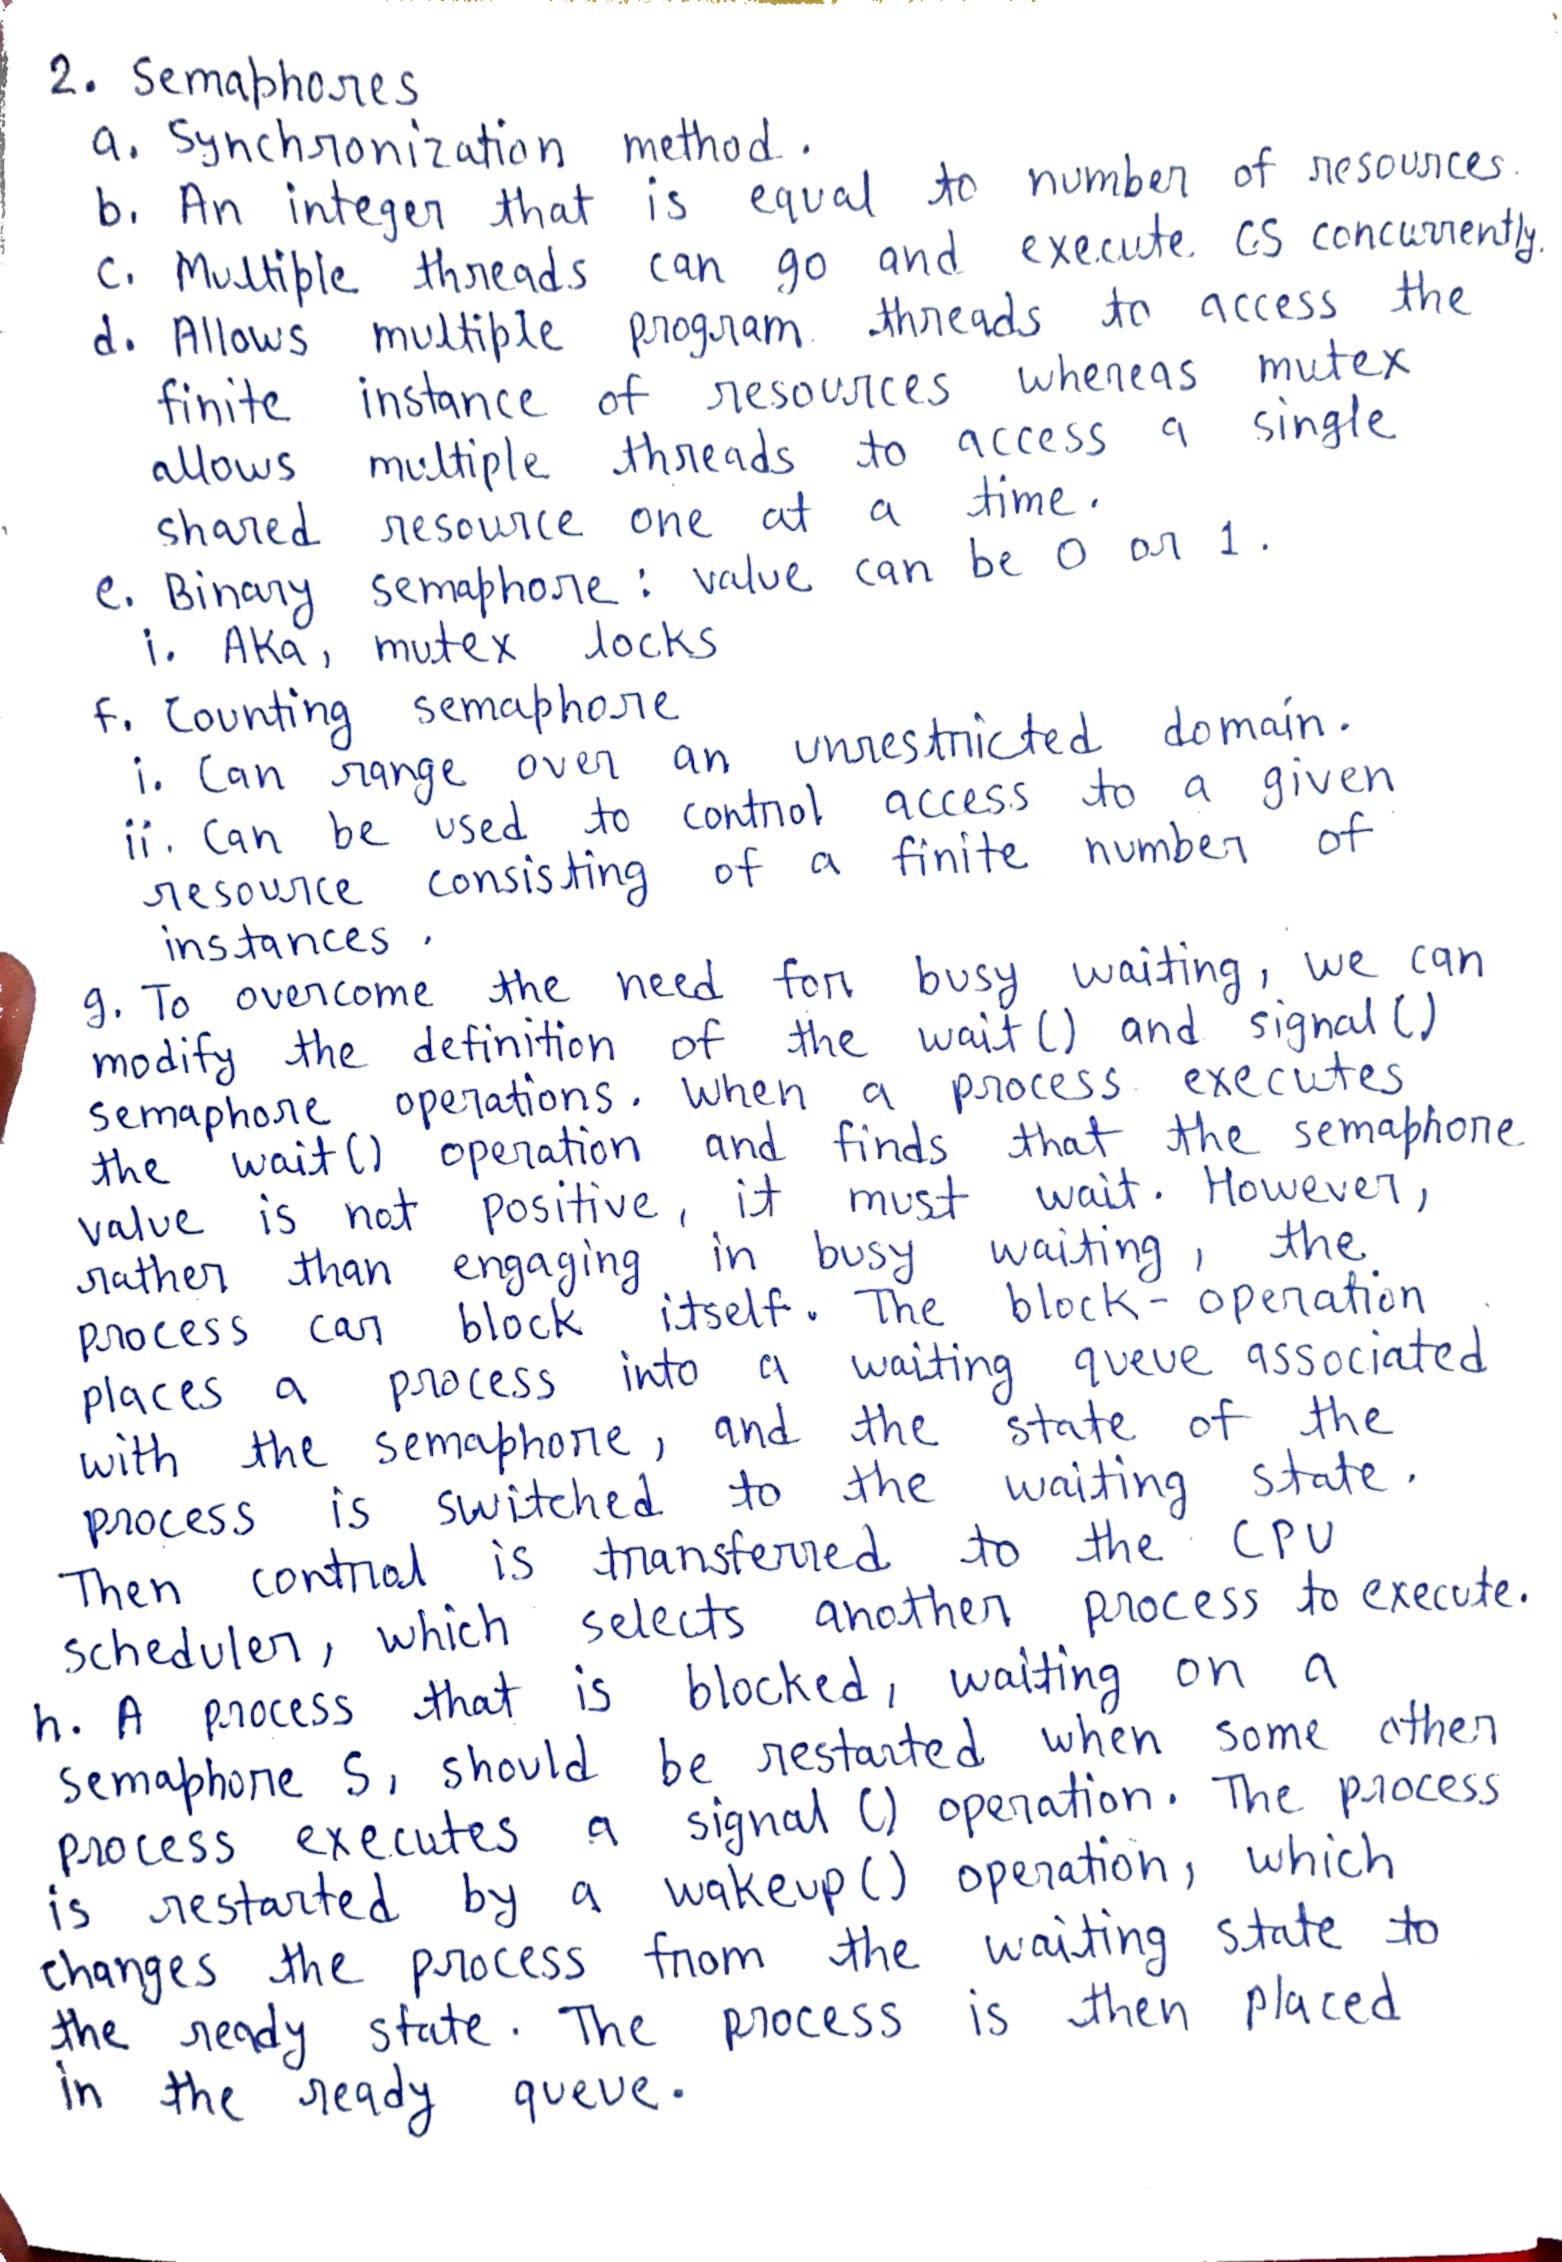 2. Semaphores
a. Synchronization method.
b. An integer that is equal to number of resources.
c. Multiple threads can go and execute CS concurrently.
d. Allows multiple program threads to access the
finite instance of resources whereas mutex
allows multiple threads to access a single
shared resource one at a time.
e. Binary semaphore : value can be 0 or 1.
i. AKa, mutex locks
f. Counting semaphore
i. Can range over an unrestricted domain.
ii. Can be used to control access to a given
resource consisting of a finite number of
instances.
g. To overcome the need for busy waiting, we can
modify the definition of the wait () and signal ()
semaphore operations. When a process executes
the wait () operation and finds that the semaphore
value is not positive, it must wait. However,
rather than engaging in busy waiting, the
process can block itself. The block-operation
places a process into a waiting queue associated
with the semaphore, and the state of the
process is switched to the waiting state.
Then control is transferred to the CPU
scheduler, which selects another process to execute.
h. A process that is blocked, waiting on a
semaphore S, should be restarted when some other
process executes a signal () operation. The process
is restarted by a wakeup () operation, which
changes the process from the waiting state to
the ready state. The process is then placed
in the ready queue.